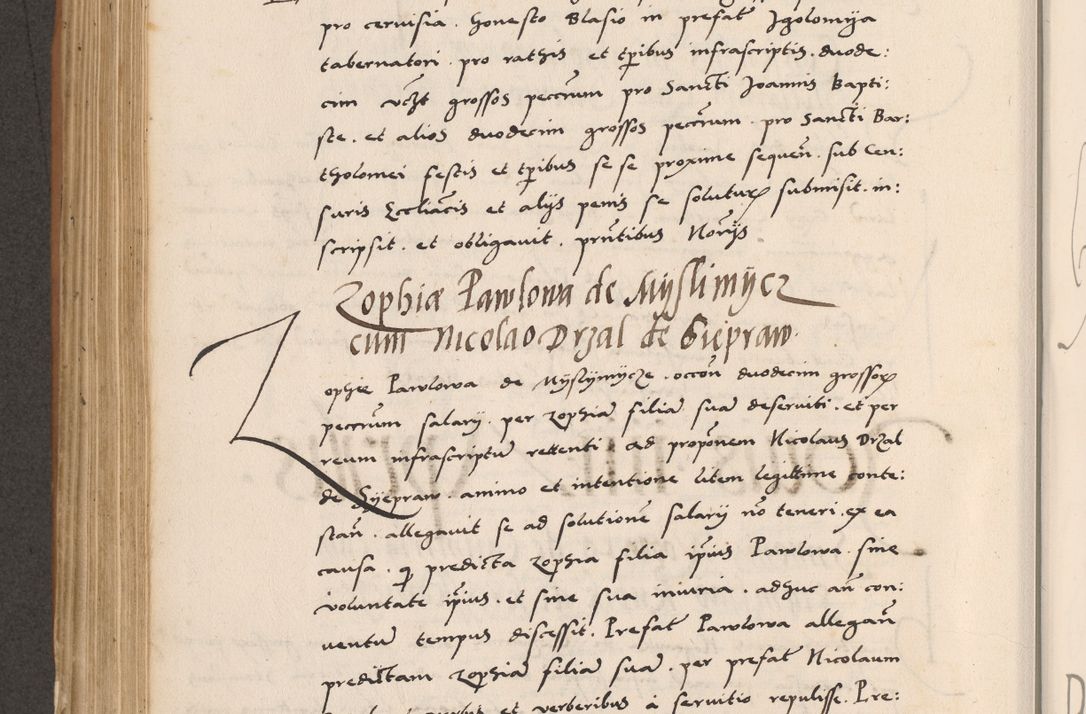 pro cervisia . honesto Blasio in prefat Jgolomÿa
tabernatori . pro rathis et tpibus infrascriptis . duode:
cim grossos peccnum pro Sancti Joannis Bapti:
ste . et alios duodecim grossos peccnum . pro Sancti Bar:
tholomei festis et tpibus se se proxime sequen̄ . sub Cen:
suris Eccliācis et alijs penis se soluturꝝ submisit . in:
scripsit . et obligavit . prn̄tibus Nor̄ijs
Zophiæ Pawlowa de Mÿslimÿcz
cum Nicolao Drzal de Siepraw
Zophie Pawlowa de Mÿslÿmÿcze . occoñ duodecim grossorꝝ
peccnum salarij . per Zophiā filiā suā deserviti . et per
reum infrascriptū retenti ad propōnem Nicolaus Drzal
de Sÿepraw . animo et intentione litem legittime conte:
stañ . allegavit se ad solutionē salarij nō teneri . ex ea
causa . qꝫ predicta Zophia filia ip̄ius Pawlowa . sine
voluntate ip̄ius . et sine sua iniuria . adhuc añ con:
ventū tempus discessit . Prefat Pawlowa allegañ
predictam Zophiā filiā suā . per prefat Nicolaum
et verberibus à servitio repulisse . Pre: